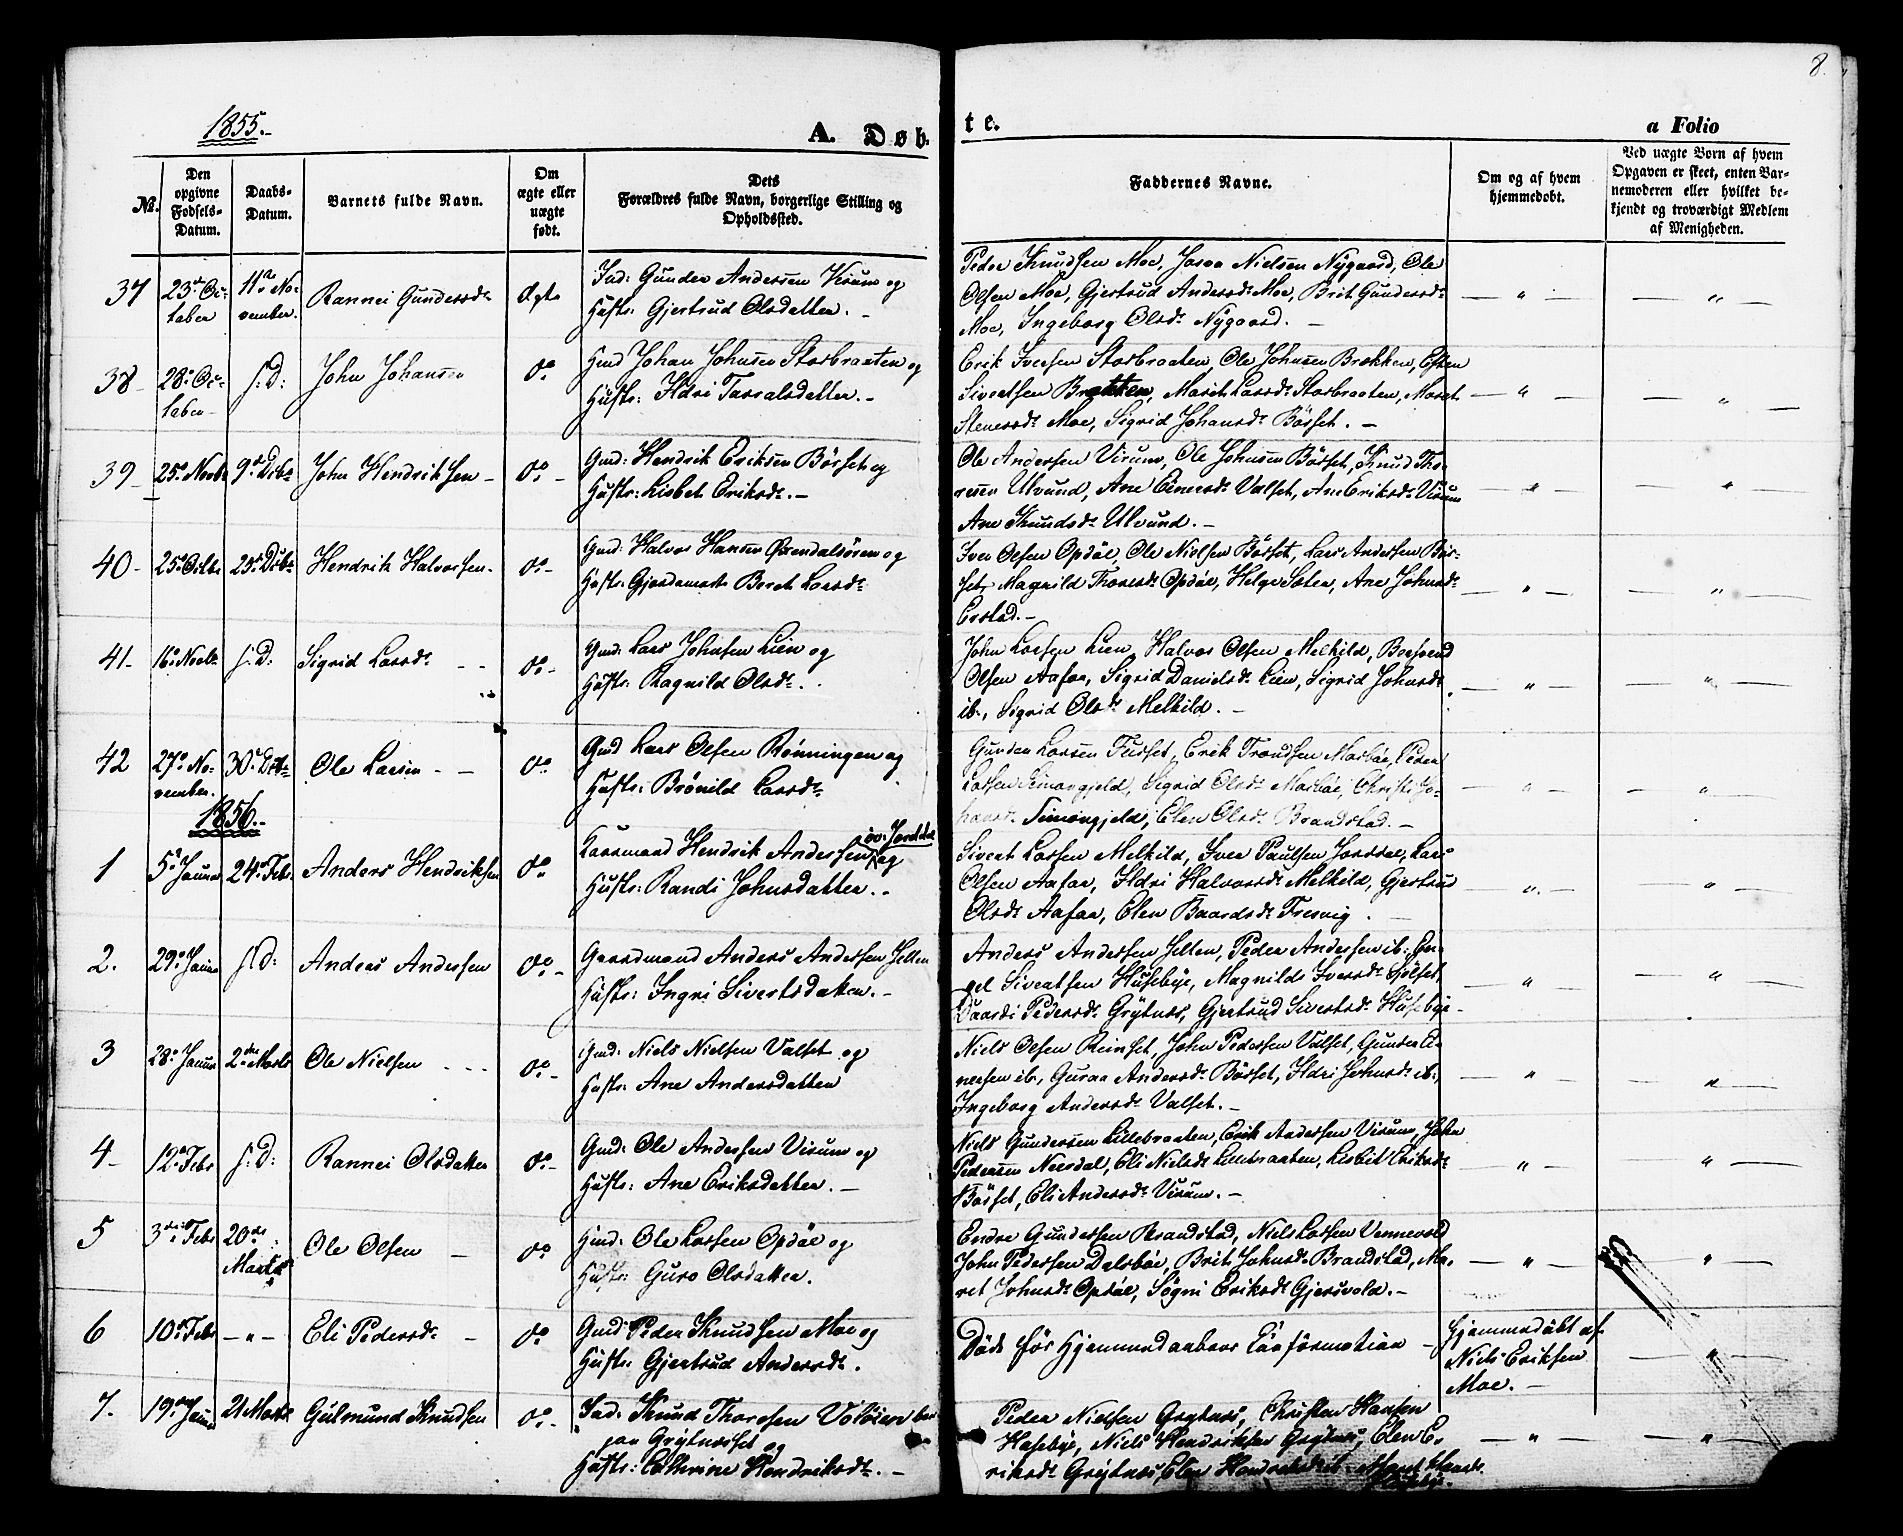 8.
1855.
A. Døb-
te.
a Folio
№.
Den opgivne Fødsels-Datum.
Daabs-Datum.
Barnets fulde Navn.
Om ægte eller uægte født.
Dets Forældres fulde Navn, borgerlige Stilling og Opholdssted.
Faddernes Navne.
Om og af hvem hjemmedøbt.
Ved uægte Børn af hvem Opgaven er skeet, enten Barnemoderen eller hvilket bekjendt og troværdigt Medlem af Menigheden.
37 23de Oc- 11te No- Rannei Gundersdt Ægte Ind: Gunder Andersen Virum og
tober vember. Hustr: Gjertrud Olsdatter.
Peder Knudsen Moe, Nielsen Nygaard, Ole
Olsen Moe, Gjertrud Andersdt Moe, Brit Gundersdt
Moe, Ingeborg Olsdt Nygaard. —
— " — — " —
38 28de Oc- s: D: John Johansen do Gmd Johan Johnsen Storbraaten og
tober Hustr: Ildri Tarralsdatter. —
Erik Iversen Storbraaten, Ole Johnsen Brækken, Esten
Sivertsen Brækken, Marit Larsdt Storbraaten, Marit
Stenersdt Moe, Sigrid Johansdt Böset. —
— " — — " —
39 25de Novbr 9de Decbr John Hendriksen do Gmd: Hendrik Eriksen Böset og
Hustr: Lisbet Eriksdt. —
Ole Andersen Virum, Ole Johnsen Böset, Knud Tho-
resen Ulvund, Ane Einersdt Valset, Ane Eriksdt Virum
Ane Knudsdt Ulvund. —
— " — — " —
40 25de Octbr 25de Decbr Hendrik Halvorsen do Gmd: Halvor Hansen Öxendalsören og
Hustr: Gjordemoder Beret Larsdt
Iver Olsen Opdöl, Ole Nielsen Böset, Lars Andersen Bö-
set, Magnild Thoresdt Opdöl, Helge Sæter, Ane Johnsdt
Erstad. —
— " — — " —
41 16de Novbr s: D: Sigrid Larsdt do Gmd: Lars Johnsen Lien og
Hustr: Ragnild Olsdt.
John Larsen Lien, Halvor Olsen Melkild, Botsvend
Olsen Aafar, Sigrid Danielsdt Lien, Sigrid Johnsdt
ib., Sigrid Olsdt Melkild. —
— " — — " —
42 27de No- 30te Decbr Ole Larsen do Gmd Lars Olsen Rönningen og
vember. Hustr: Brönild Larsdt
Gunder Larsen Furset, Erik Trondsen Morböe, Peder
Larsen Simongjeld, Sigrid Olsdt Morböe, Christi Jo-
hansdt Simongjeld, Elen Olsdt Brandstad. —
— " — — " —
1856.
1 5te Januar 24de Febr Anders Hendriksen do Kaarmand Hendrik Andersen öv: Jordal og
Hustr: Randi Johnsdatter.
Sivert Larsen Melkild, Iver Paulsen Jordal, Lars
Olsen Aafar, Ildri Halvorsdt Melkild, Gjertrud
Olsdt Aafar, Elen Baardsdt Fresvig.
— " — — " —
2. 29de Januar s: D: Anders Andersen do Gaardmand Anders Andersen Jelten
Hustr: Ingri Sivertsdatter. —
Anders Andersen Jelten, Peder Andersen ib., En-
gel Sivertsen Husebye, Magnild Iversdt Sjölset,
Baardi Pedersdt Grytnæs, Gjertrud Sivertsdt Husebye
— " — — " —
3 28de Januar 2den Marts Ole Nielsen do Gmd: Niels Nielsen Valset og
Hustr: Ane Andersdatter
Niels Olsen Reinset, John Pedersen Valset, Gunder Ei-
nersen ib., Guraa Andersdt Böset, Ildri Johnsdt ib.,
Ingeborg Andersdt Valset. —
— " — — " —
4 12te Febr s: D: Rannei Olsdatter do Gmd: Ole Andersen Virum og
Hustr: Ane Eriksdatter. —
Niels Gundersen Lillebraaten, Erik Andersen Virum, John
Pedersen Neesdal, Eli Nielsdt Lillebraaten, Lisbit Eriksdt
Böset, Eli Andersdt Virum. —
— " — — " —
5 3die Febr 20de Marts Ole Olsen do Gmd: Ole Larsen Opdöl og
Hustr: Guro Olsdatter.
Endre Gundersen Brandstad, Niels Larsen Vennevold
John Pedersen Dalsböe, Brit Johnsdt Brandstad, Ma-
rit Johnsdt Opdöl, Sögni Eriksdt Gjersvold. —
— " — — " —
6 10de Febr — " — Eli Pedersdt do Gmd: Peder Knudsen Moe og
Hustr: Gjertrud Andersdt.
Död för Hjemmedaabens Confirmation —
Hjemmedöbt af
Niels Eriksen
Moe. —
— " —
7. 19de Januar 21 Marts Gulmund Knudsen do Ind: Knud Thoresen
paa Grytnæset og
Hustr: Cathrine Hendriksdt. —
Peder Nielsen Grytnæs, Christen Hansen
Husebye, Niels Hendriksen Grytnæs, Elen E-
riksdt Grytnæs, Elen Hendriksdt ib., Marit Hansdt
Husebye.
— " — — " —